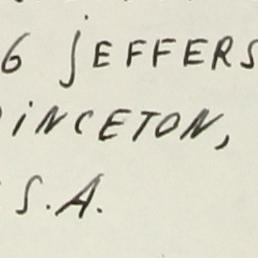 6 JEFFERS
INCETON,
S.A.